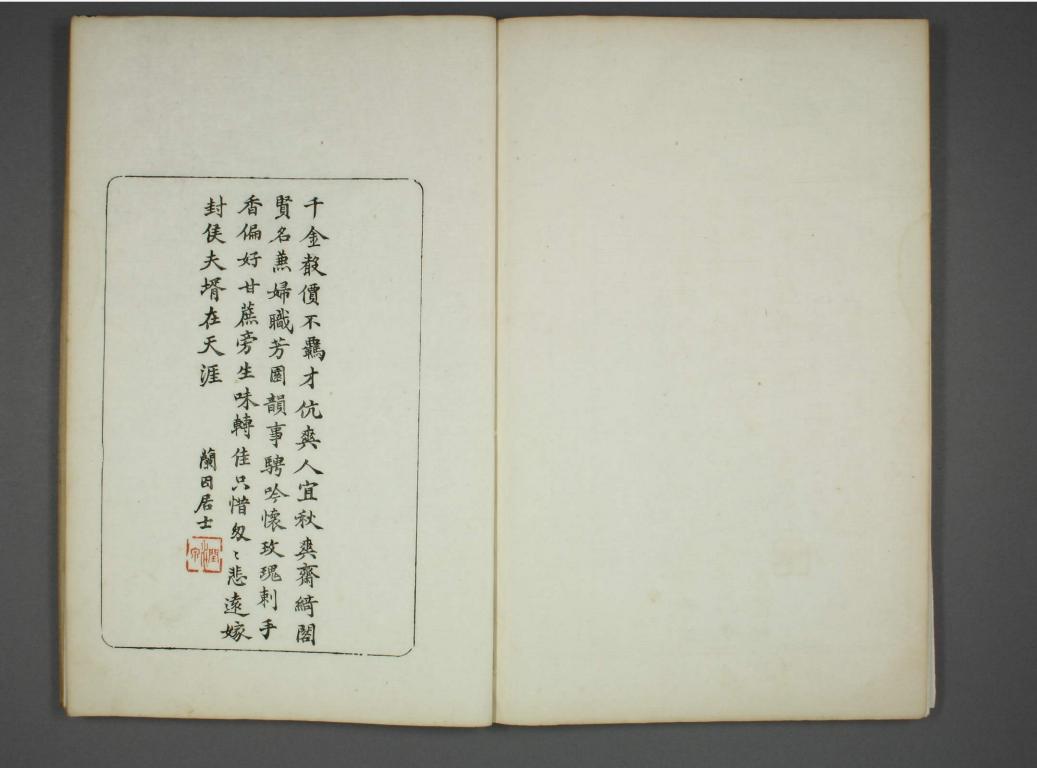 千金敌價不羈才伉爽人宜秋爽齋綺閣
賢名蕉婦職芳園韻事騁吟懷玫瑰刺手
香偏好甘蔗旁生味轉佳只惜匆〻悲遠嫁
封侯夫壻在天涯
蘭因居士